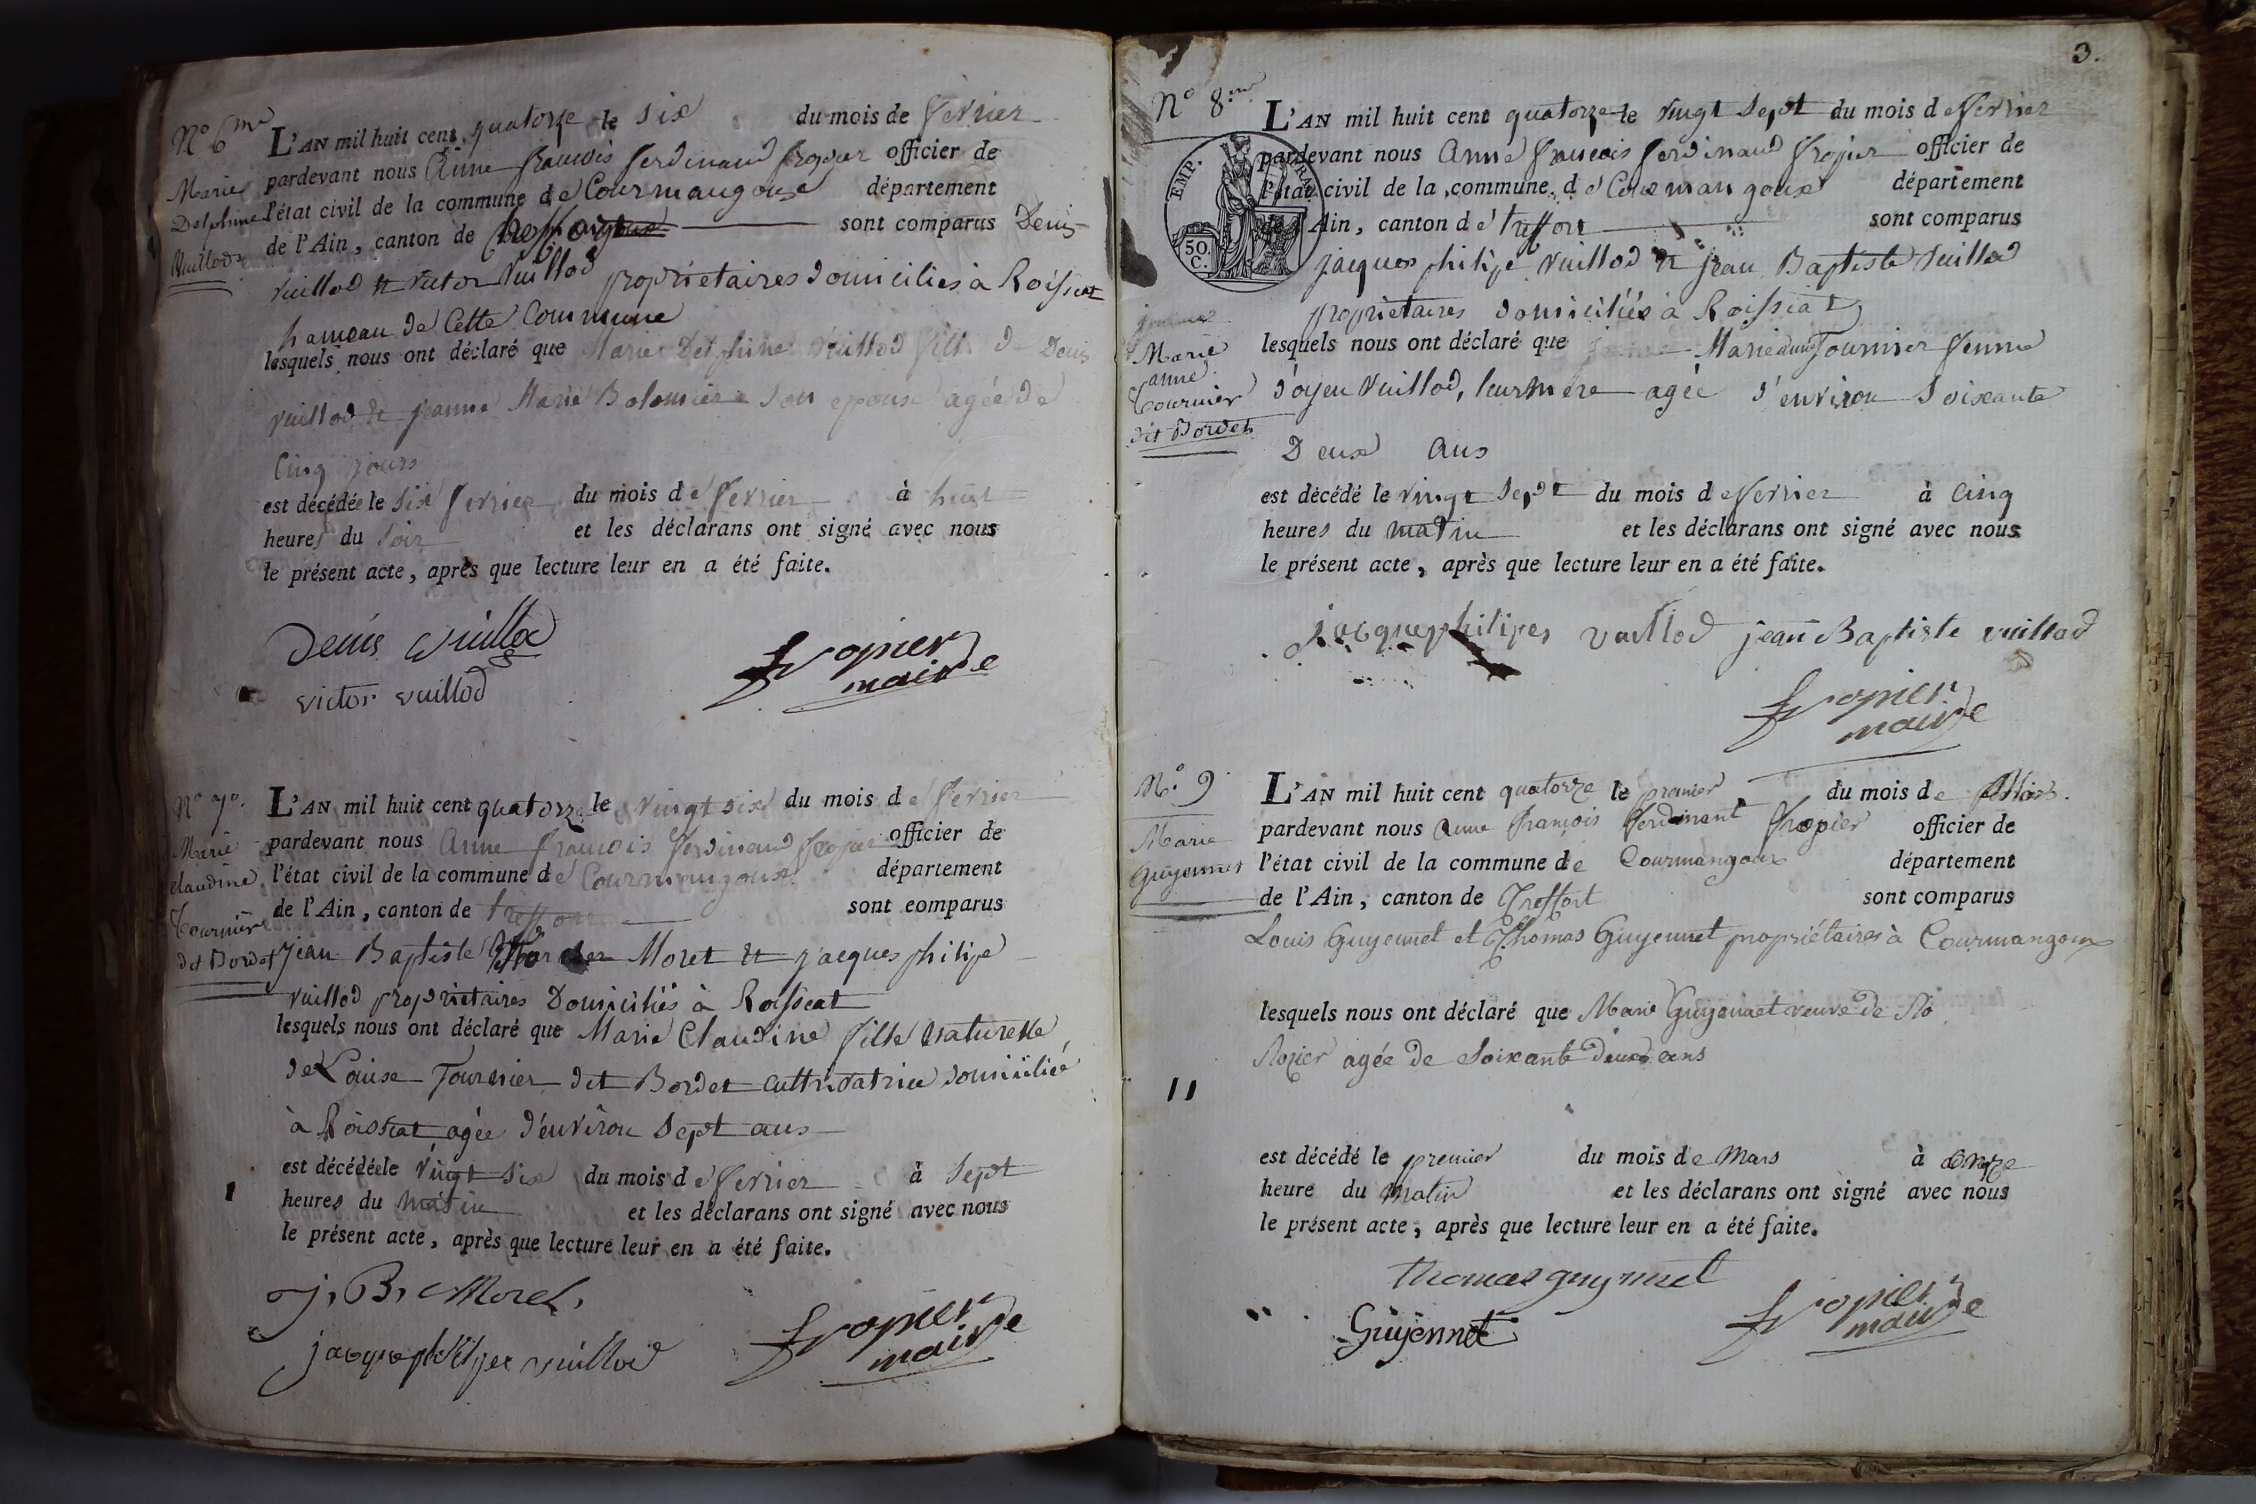 N° 6me
Marie
Delphine
Vuillod
L'AN mil huit cent quatorze le six du mois de fevrier
pardevant nous Anne francois ferdinand fropier officier de
l'état civil de la commune de Courmangoux département
de l'Ain, canton de sont comparus Denis
vuillod et victor vuillod proprietaires domiciliés à Roissiat
hameau de Cette Commune
lesquels nous ont déclaré que Marie Delphine Vuillod fille d Denis
vuillod et jeanne Marie Bolomier son epouse agée de
Cinq jours
est décédée le six fevrier du mois de fevrier à huit
heures du soir et les déclarans ont signé avec nous
le présent acte, après que lecture leur en a été faite.
Denis Vuillod
victor vuillod
fropier
maire
N° 7°.
Marie
claudine
Tournier
dit Bordet
L'AN mil huit cent quatorze le vingt six du mois de fevrier
pardevant nous Anne francois ferdinand fropier officier de
l'état civil de la commune de Courmangoux département
de l'Ain, canton de treffort sont comparus
jean Baptiste Moret et jacques philipe
vuillod proprietaires Domiciliés à Roissiat
lesquels nous ont déclaré que Marie Claudine fille naturelle
de Louise Tournier dit Bordet cultivatrice domiciliée
à Roissiat agée d'environ sept ans
est décédée le vingt six du mois de fevrier à sept
heures du matin et les déclarans ont signé avec nous
le présent acte, après que lecture leur en a été faite.
j. B. Moret.
jacques philipe vuillod
fropier
maire
3.
N° 8.me
EMP. FRA
50.
C.
Marie
anne
Tournier
dit Bordet
L'AN mil huit cent quatorze le vingt sept du mois de fevrier
pardevant nous Anne francois ferdinand fropier officier de
l'état civil de la commune de Courmangoux département
de l'Ain, canton de treffort sont comparus
jacques philipe vuillod et jean Baptiste vuillod
proprietaires domiciliés à Roissiat
lesquels nous ont déclaré que Marie anne Tournier femme
d'oyen Vuillod, leur mere agée d'environ soixante
Deux ans
est décédé le vingt sept du mois de fevrier à cinq
heures du matin et les déclarans ont signé avec nous
le présent acte, après que lecture leur en a été faite.
jacque philipes vuillod jean Baptiste vuillod
fropier
maire
N.° 9
Marie
Guyennet
L'AN mil huit cent quatorze le premier du mois de Mars.
pardevant nous Anne François Ferdinant Fropier officier de
l'état civil de la commune de Courmangoux département
de l'Ain, canton de Treffort sont comparus
Louis Guyennet et Thomas Guyennet propriétaires à Courmangoux
lesquels nous ont déclaré que Marie Guyennet veuve de
Rozier agée de soixante deux ans
11
est décédé le premier du mois de Mars à onze
heure du matin et les déclarans ont signé avec nous
le présent acte, après que lecture leur en a été faite.
thomas guyennet
Guyennet
fropier
maire